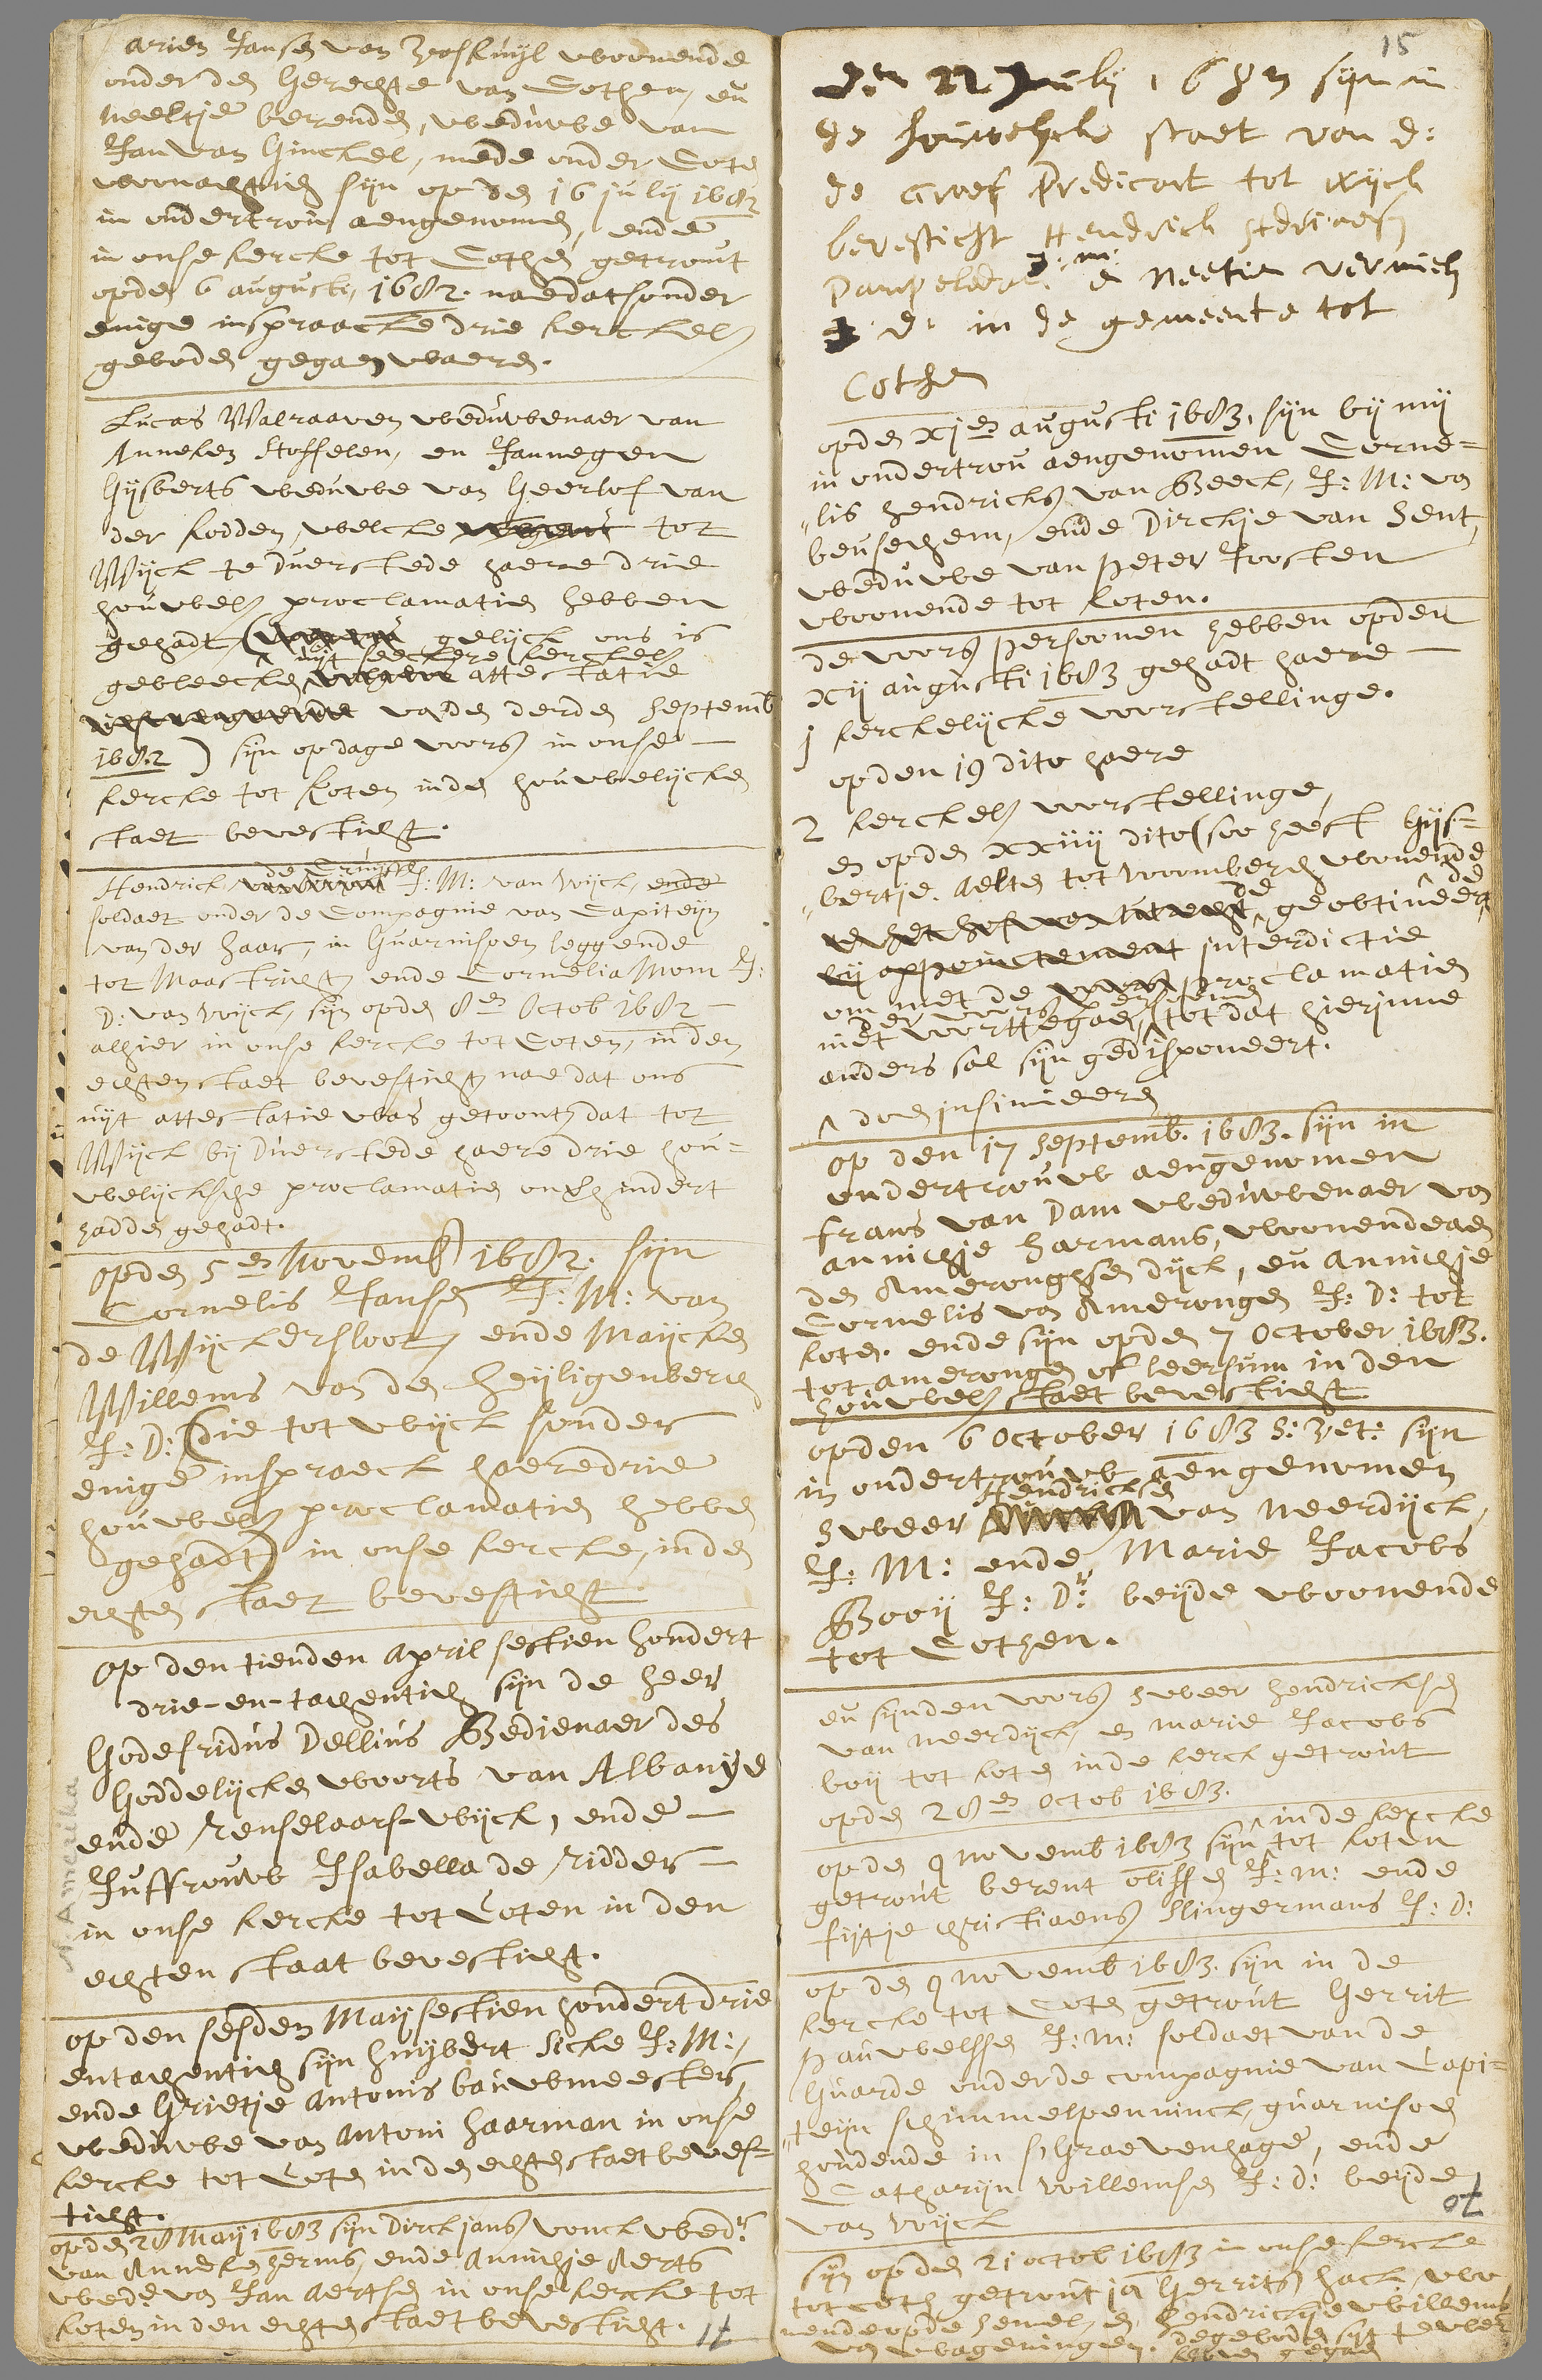 Arien Jansen van Zoestuijl woonende
onder den Gerechte van Cothen, en
Neeltje berends, weduwe van
Jan van Ginckel, mede onder Coten
woonachtich sijn op den 16 july 1682
in ondertrou aengenomen, ende
in onse kercke tot Cothen getrout
opden 6 augusti, 1682. naedat sonder
enige inspraacke drie kerckel.
geboden gegaen waeren.
Lucas Walraaven weduwenaer van
Anneken Stoffelen, en Jannegen
Gijsberts weduwe van Geerlof van
der Kodden, welcke tot
Wijck te Duerstede haere drie
houwel. proclamatien hebben
gehadt ( gelijck ons is
uijt seeckere kerckel.
gebleecken attestatie
vanden derden Septemb
1682 ) sijn op dage voors. in onse
kercke tot Koten inden houwelijcken
staet bevesticht.
de Cruijff
Hendrick J: M: van Wijck, ende
soldaet onder de Compagnie van Capiteijn
van der Haar, in Guarnisoen leggende
tot Maastricht ende Cornelia Mom J:
D: van Wijck, sijn opden 8en Octob 1682
alhier in onse kercke tot Coten, in den
echten staet bevesticht nae dat ons
uijt attestatie was getoont, dat tot
Wijck bij Duerstede haere drie hou-
welijcksche proclamatien onverhindert
hadden gehadt.
Opden 5en Novemb 1682. sijn
Cornelis Jansen J: M: van
de Wijckersloot, ende Maijcken
Willems van den Heijligenberch
J: D: (die tot Wijck sonder
enige inspraeck haere drie
houwel. proclamatien hebben
gehadt) in onse kercke, inden
echten staet bevesticht
Op den tienden April sestien hondert
drie-en-tachentich sijn de heer
Godefridus Dellius Bedienaer des
Goddelijcken woorts van Albanije
ende Renselaars-wijck, ende
Juffrouw Isabella de Ridder
in onse kercke tot Coten in den
echten staat bevesticht.
N. Amerika
op den sesden Maij sestien hondert drie
entachentich sijn Huijbert Sicke J: M:,
ende Grietje Antonis Bauwmeesters,
weduwe van Antoni Haarman in onse
kercke tot Coten in den echten staet beves-
ticht.
opden 28 Maij 1683 sijn Dirck jans. vonck wedr.
van Anneken Herms, ende Annichje Aerts
wede. van Jan Aertsen in onse kercke tot
Koten in den echten staet bevesticht.
15
Den 22 July 1683 sijn in
de houwelycke staet van D:
de Graef Predicant tot Wijck
bevesticht Hendrick Adriaens
J: m:
Pampelder. & Neeltie Vermich
J: D: in de gemeente tot
Cothen
opden xjen augusti 1683. sijn bij mij
in ondertrou aengenomen Corne-
lis Hendricks. van Beeck, J: M: van
beusechem, ende Dirckje van Hent,
weduwe van Peter Joosten
woonende tot Koten.
de voors. persoonen hebben opden
xij augusti 1683 gehadt haere
1 kerckelijcke voorstellinge.
opden 19 dito haere
2 kerckel. voorstellinge,
en opden xxiiij dito (soo heeft Gijs-
bertje Aelten tot Woomberch woonende
geobtineerde
bij appoinctement interdictie
om met de proclamatien
der voors. persoonen
niet voort te gaen, tot dat hierinne
anders sal sijn gedisponeert.
^ doen insinueren
Op den 17 septemb. 1683. sijn in
ondertrouw aengenomen
frans van Dam weduwenaer van
annichje Harmans, woonende aen
den Amerongschen dijck, en Annichje
Cornelis van Amerongen J: D: tot
Koten. ende sijn opden 7 October 1683.
tot amerongen of leersum in den
houwel. staet bevesticht
opden 6 October 1683 S: Vet: sijn
in ondertrouw aengenomen
Hendricksen
Sweer van Neerdijck,
J: M: ende Marie Jacobs
Booij J: Dr. beijde woonende
tot Cothen.
en sijn den voors. Sweer Hendricksen
van Neerdijck, en Marie Jacobs
boij tot Koten inde kerck getrout
opden 28en Octob 1683.
inde kercke
opden 9 Novemb 1683 sijn ^ tot Koten
getrout berent Olifsen J: m: ende
Fijtje Christiaens. Slingermans J: D:
op den 9 Novemb 1683. sijn in de
kercke tot Coten getrout Gerrit
Pauwelssen J: m: soldaet van de
Guarde onder de compagnie van Capi-
teijn Schimmelpenninck, guarnisoen
houdende in sGraevenhage, ende
Catharijn Willemsen J: D: beijde
van Wijck
sijn opden 21 octob 1683 in onse kercke
tot Coten getrout Jan Gerrits. Hack, wo
nende op de Hemel, en Hendrickje Willems
van Wageningen. de geboden sijn